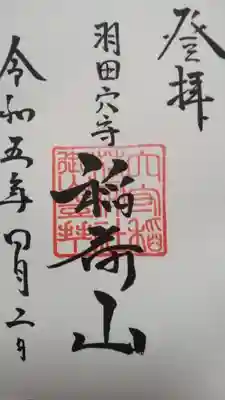 登拝
羽田穴守
稲荷山
令和五年四月二日